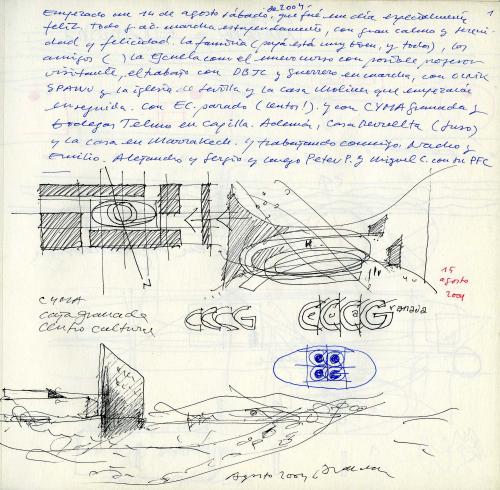 Empezado un 14 de agosto sábado, de 2004, que fué un día especialmente
feliz. Todo está en marcha estupendamente, con gran calma y sereni-
dad y felicidad. La familia (papá está muy bien, y todos), los
amigos ( ) la Escuela con el nuevo curso con posible profesor
visitante, el trabajo con DBJC y Guerrero en marcha, con
SPANU y la iglesia de Sevilla y la casa Moliner que empezarán
enseguida. Con EC. parado (lento!) y con CYMA Granada y
bodegas Telmo en capilla. Además, Casa
y la casa en Marrakech. Y trabajando conmigo, Nacho y
Emilio. Alejandro y Sergio y luego Peter P. y Miguel C. con su PFC
1
15
agosto
2004
CYMA
Caja Granada
Centro Cultural
CCCG
CCCG ranada
Agosto 2004